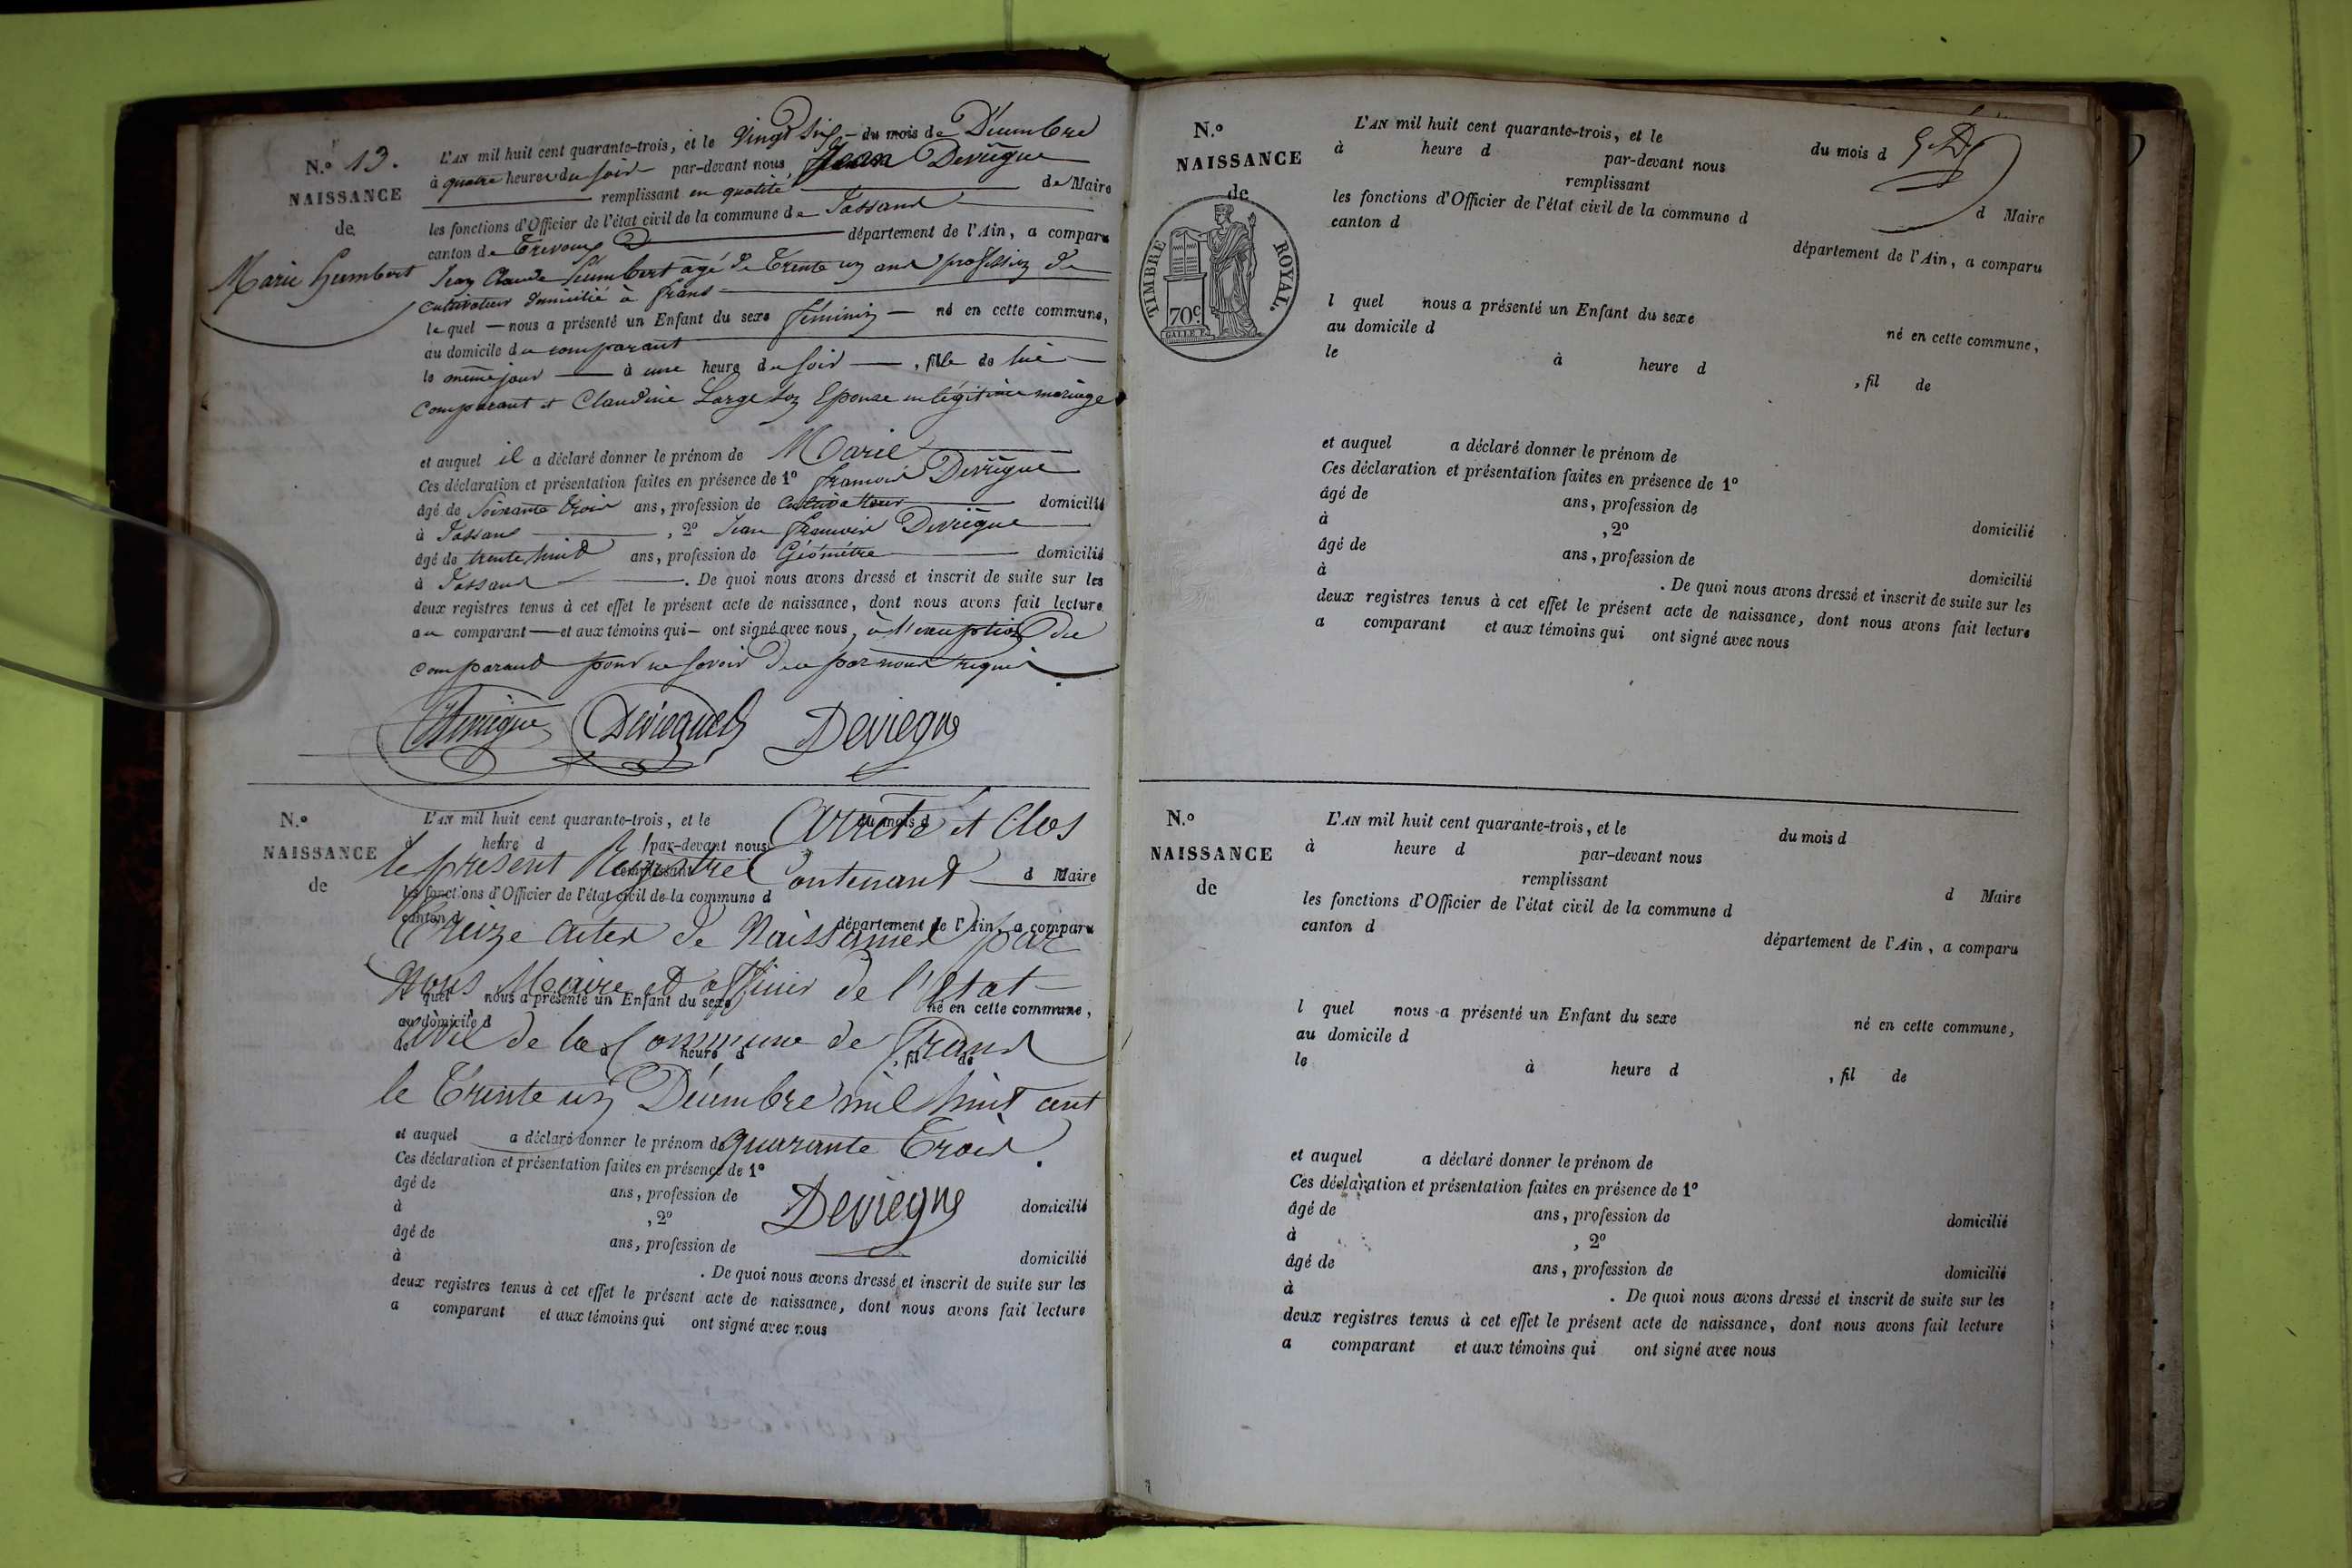 N.o 13.
NAISSANCE
de
Marie humbert
L'AN mil huit cent quarante-trois, et le Vingt Six du mois de Décembre
à quatre heures du soir par-devant nous, Jean Deviegne
remplissant en qualité de Maire
les fonctions d'Officier de l'état civil de la commune de Jassans
canton de Trevoux département de l'Ain, a comparu
Jean Claude humbert âgé de Trente un ans profession de
cultivateur domicilié à frans
lequel nous a présenté un Enfant du sexe féminin né en cette commune,
au domicile du comparant
le même jour à une heure du soir, fille de lui
comparant et Claudine Large son Epouse en légitime mariage
et auquel il a déclaré donner le prénom de Marie
Ces déclaration et présentation faites en présence de 1o françois Deviegne
âgé de Soixante trois ans, profession de Cultivateur domicilié
à Jassans, 2o Jean françois Deviegne
âgé de trente huit ans, profession de Géomètre domicilié
à Jassans. De quoi nous avons dressé et inscrit de suite sur les
deux registres tenus à cet effet le présent acte de naissance, dont nous avons fait lecture
au comparant et aux témoins qui ont signé avec nous, à l'exception du
comparant pour ne savoir de ce par nous requis
Deviegne Deviegne Deviegne
N.o
NAISSANCE
de
L'AN mil huit cent quarante-trois, et le du mois d
à heure d par-devant nous
remplissant d Maire
les fonctions d'Officier de l'état civil de la commune d
canton d département de l'Ain, a comparu
l quel nous a présenté un Enfant du sexe né en cette commune,
au domicile d
le à heure d , fil de
Arreté et Clos
le présent Registre Contenant
Treize actes de Naissances par
Nous Maire et officier de l'Etat
Civil de la Commune de Frans
le Trente un Décembre mil huit cent
quarante Trois.
Deviegne
et auquel a déclaré donner le prénom de
Ces déclaration et présentation faites en présence de 1o
âgé de ans, profession de domicilié
à , 2o
âgé de ans, profession de domicilié
à . De quoi nous avons dressé et inscrit de suite sur les
deux registres tenus à cet effet le présent acte de naissance, dont nous avons fait lecture
a comparant et aux témoins qui ont signé avec nous
N.o
NAISSANCE
de
TIMBRE ROYAL.
70c.
L'AN mil huit cent quarante-trois, et le du mois d
à heure d par-devant nous
remplissant d Maire
les fonctions d'Officier de l'état civil de la commune d
canton d département de l'Ain, a comparu
l quel nous a présenté un Enfant du sexe né en cette commune,
au domicile d
le à heure d , fil de
et auquel a déclaré donner le prénom de
Ces déclaration et présentation faites en présence de 1o
âgé de ans, profession de domicilié
à , 2o
âgé de ans, profession de domicilié
à . De quoi nous avons dressé et inscrit de suite sur les
deux registres tenus à cet effet le présent acte de naissance, dont nous avons fait lecture
a comparant et aux témoins qui ont signé avec nous
N.o
NAISSANCE
de
L'AN mil huit cent quarante-trois, et le du mois d
à heure d par-devant nous
remplissant d Maire
les fonctions d'Officier de l'état civil de la commune d
canton d département de l'Ain, a comparu
l quel nous a présenté un Enfant du sexe né en cette commune,
au domicile d
le à heure d , fil de
et auquel a déclaré donner le prénom de
Ces déclaration et présentation faites en présence de 1o
âgé de ans, profession de domicilié
à , 2o
âgé de ans, profession de domicilié
à . De quoi nous avons dressé et inscrit de suite sur les
deux registres tenus à cet effet le présent acte de naissance, dont nous avons fait lecture
a comparant et aux témoins qui ont signé avec nous